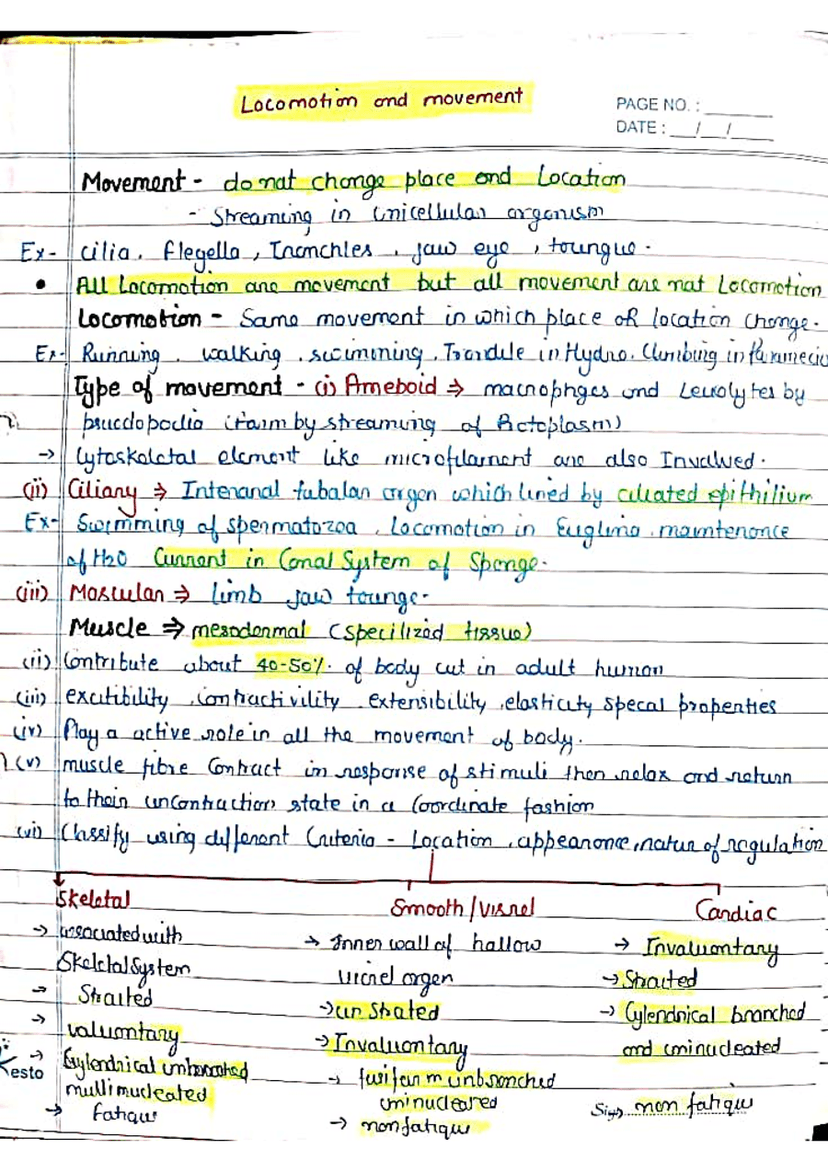 Locomotion and movement
PAGE NO. :
DATE : / /
Movement - do not change place and Location
- Streaming in Unicellular organism
Ex- cilia, flegella, jaw eye, toungue.
• All Locomotion are movement but all movement are not Locomotion
Locomotion - Same movement in which place or location change.
Ex- Running, walking, swimming, in Hydra. Climbing in
Type of movement - (i) Ameboid ⇒ and by
(form by streaming of
→ element like microfilament are also Involved.
(ii) Ciliary ⇒ organ which lined by ciliated epithilium
Ex- Swimming of spermatozoa, Locomotion in maintenance
of H2O Current in Canal System of Sponge.
(iii) Moscular ⇒ limb jaw tounge.
Muscle ⇒ mesodermal (specilized tissue)
(ii) Contribute about 40-50% of body in adult human
(iii) excitibility, contractivility, extensibility, elasticity specal properties
(iv) Play a active role in all the movement of body.
(v) muscle fibre Contract in response of stimuli then relax and return
to their uncontraction state in a Coordinate fashion
(vi) Classify using different Criteria - Location, appearance, natur of regulation
Skeletal Smooth / Cardiac
→ associated with → Inner wall of hallow → Invaluontary
Skeletal System organ → Straited
→ Straited → un Cylendrical branched
→ valuontary → Invaluontary and uninucleated
→ Cylendrical unbranched
multinucleated → fusiform unbranched
→ fatique uninucleared non fatique
→ non fatique